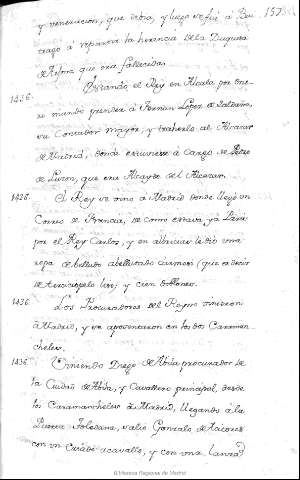 y veneracion, que debia, y luego se fué à Bui
157
trago à reparar la herencia de la Duquesa
de Arjona que era fallecida.
Estando el Rey en Alcalá por ene
1436.
ro mandó prender à Fernan Lopez de Saldaña,
su Contador mayor, y traherlo al Alcazar
de Madrid, donde estuviese à cargo de Pedro
de Luzon, que era Alcayde del Alcazar.
1436.
El Rey se vino à Madrid donde llegó un
Correo de Francia, de como estava ya Paris
por el Rey Carlos, y en albricias le dió una
ropa de belludo abellutado carmesi (que es decir
de terciopelo) y cien doblones.
1436.
Los Procuradores del Reyno vinieron
à Madrid, y se aposentaron en los dos Caraman-
cheles.
1436.
Viniendo Diego de Abila procurador de
la Ciudad de Abila, y Cavallero principal, desde
los Caramancheles à Madrid, llegando à la
Puente Toledana, salió Gonzalo de
con un Criado acavallo, y con una lanza
Biblioteca Regional de Madrid